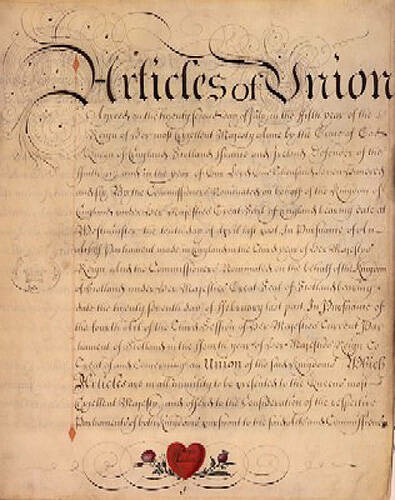 Articles of Union
Agreed on the twenty Second day of July in the fifth year of the
Reign of Her most Excellent Majesty Anne by the Grace of God
Queen of England Scotland France and Ireland Defender of the
ffaith &c and in the year of Our Lord One thousand Seven hundred
and Six By the Commissioners Nominated on behalf of the Kingdom of
England under Her Majesties Great Seal of England bearing date at
Westminster the tenth day of April last past In pursuance of an
Act of Parliament made in England in the third year of Her Majesties
Reign and the Commissioners Nominated on the behalf of the Kingdom
of Scotland under Her Majesties Great Seal of Scotland bearing
date the twenty seventh day of ffebruary last past In Pursuance of
the fourth Act of the third Session of Her Majesties Current Par
liament of Scotland in the ffourth year of Her Majesties Reign to
treat of and Concerning an Union of the said Kingdoms Which
Articles are in all humility to be presented to the Queens most
Excellent Majesty and offered to the Consideration of the respective
Parliaments of both Kingdoms pursuant to the said Acts and Commissions